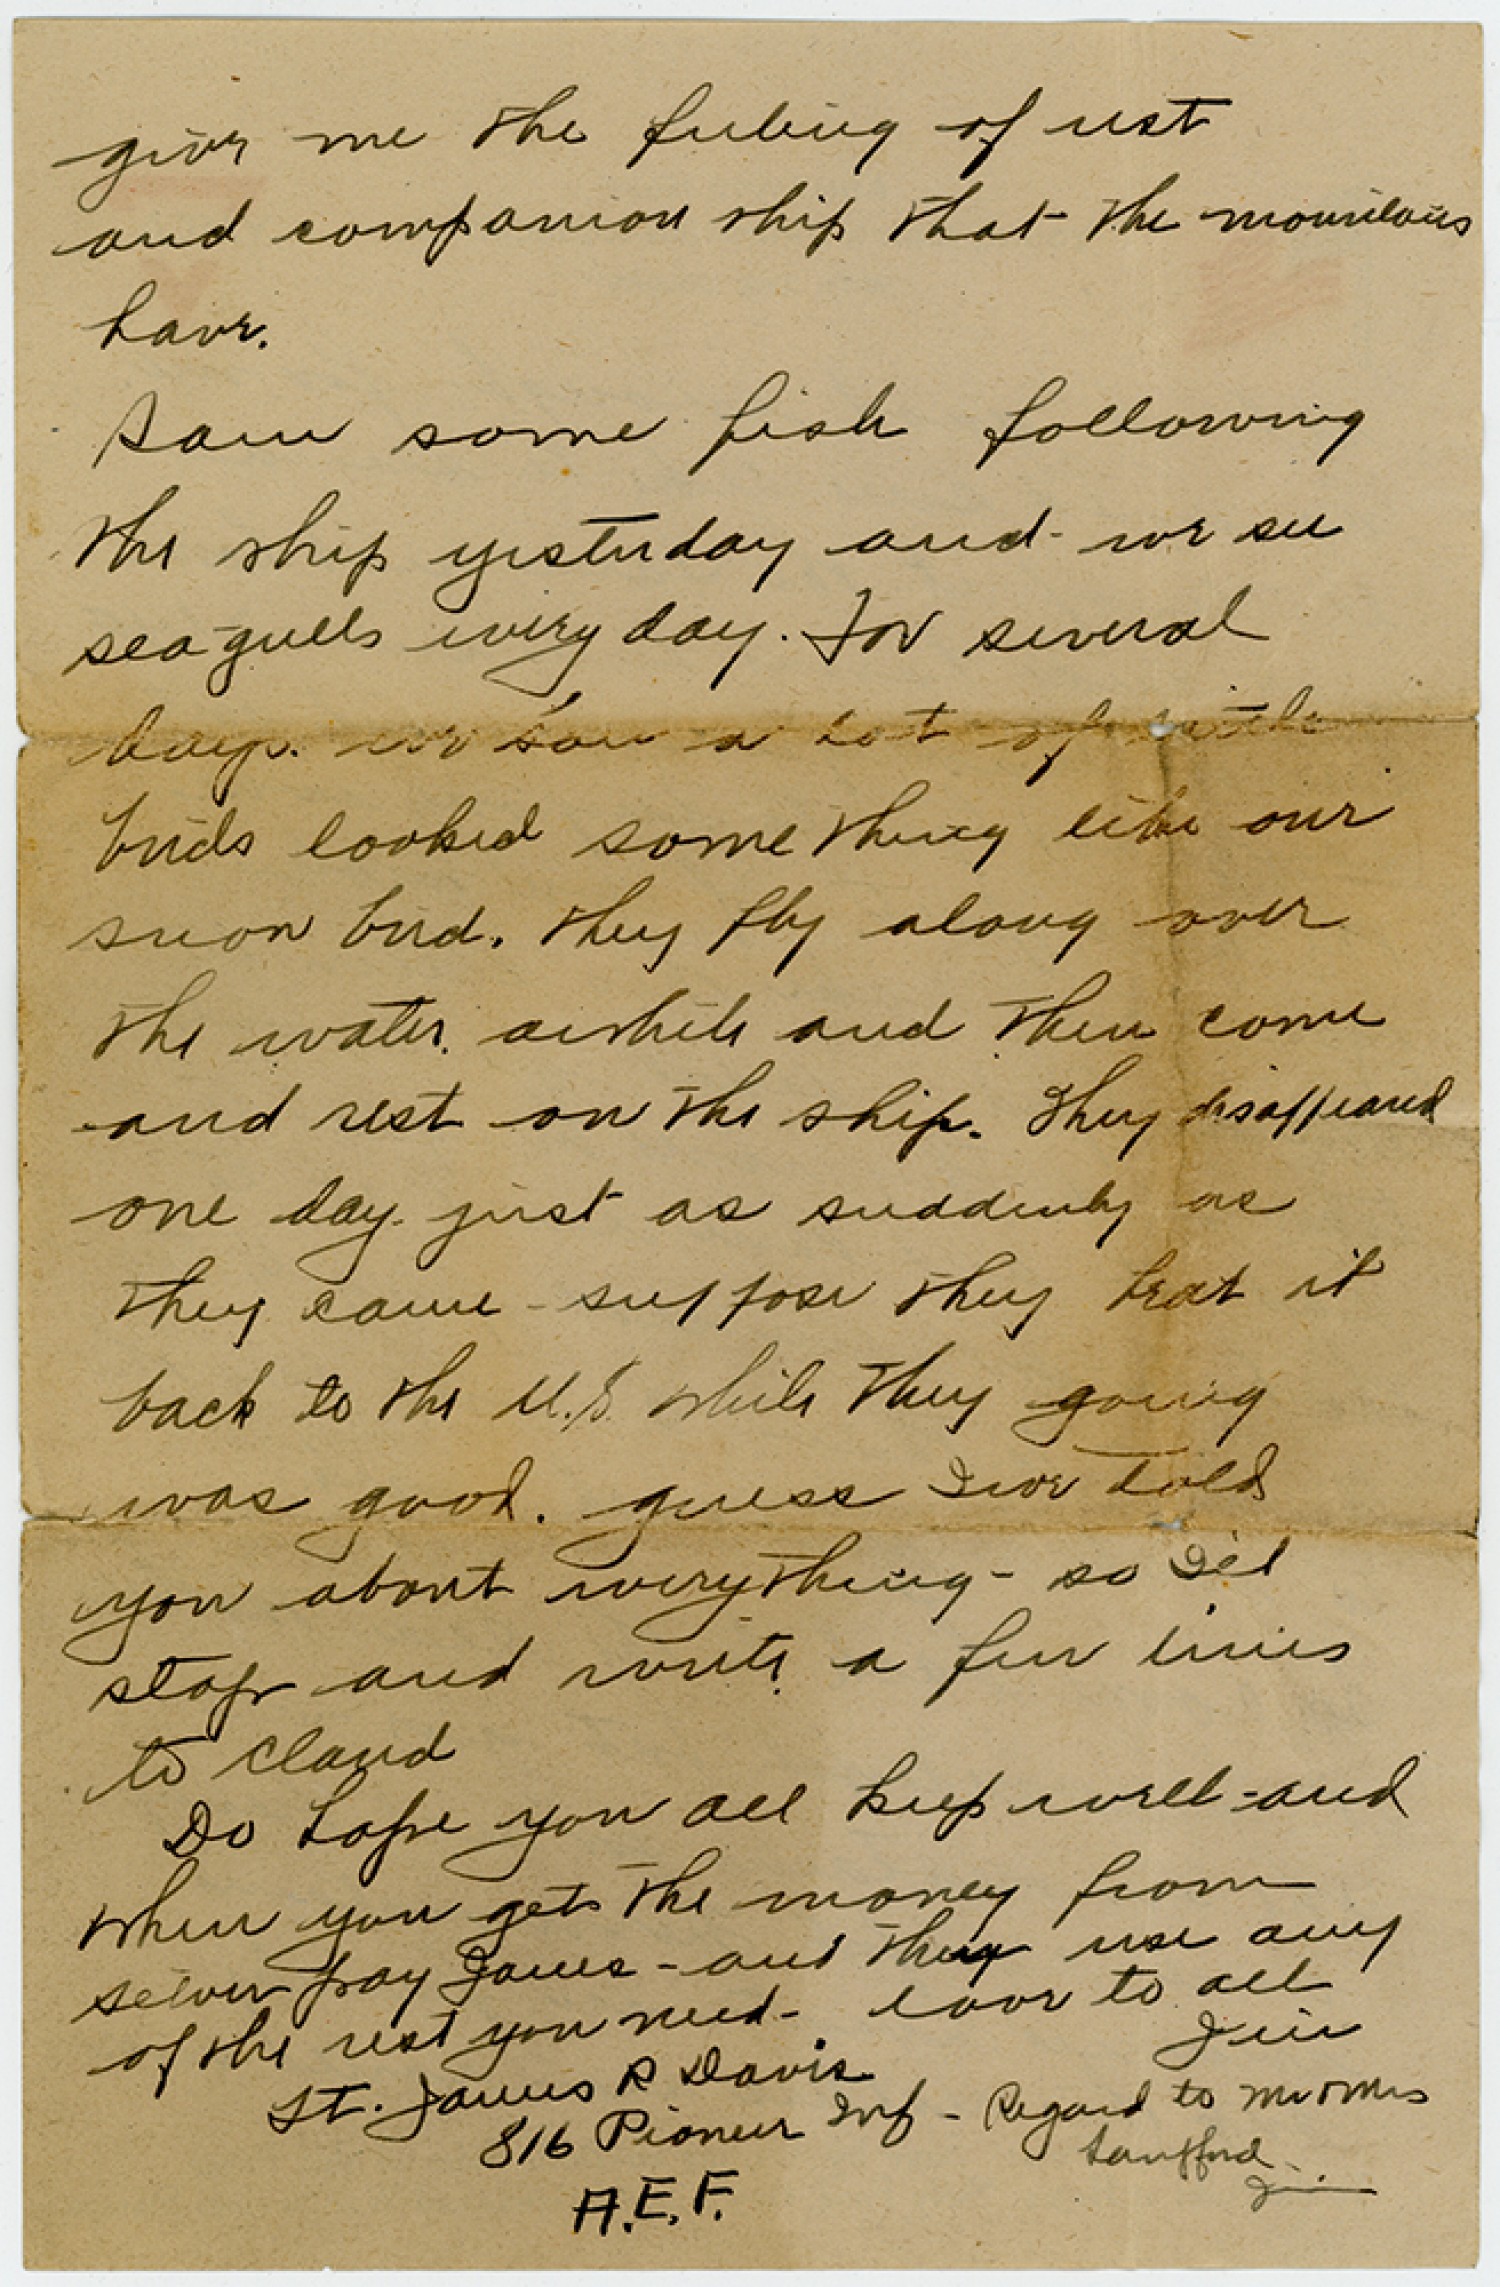 give me the feeling of rest
and companion ship that the mountains
have.
Saw some fish following
the ship yesterday and - we see
sea-gulls every day. For several
days. we saw a lot of little
birds looked some thing like our
snow bird. they fly along over
the water. awhile and then come
and rest on the ship. They disappeared
one day. just as suddenly as
they came - suppose they beat it
back to the U.S. while they going
was good. guess I've told
you about everything - so I'll
stop and write a few lines
to Claud
Do hope you all keep well - and
when you gets the money from
pay James - and they use any
of the rest you need - love to all
Jim
Lt. James R Davis
816 Pioneer Inf - Regard to Mr & Mrs
A.E.F.
Jim